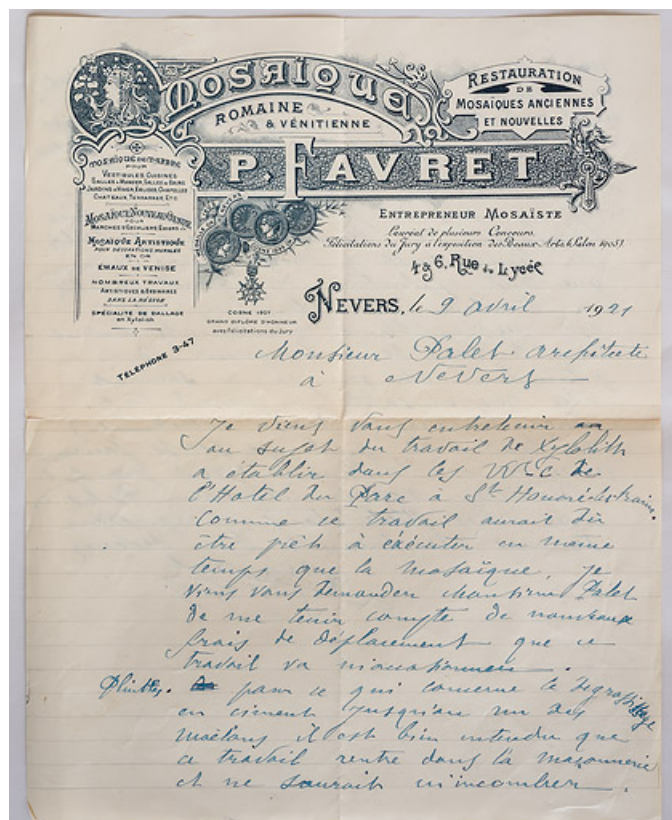 MOSAÏQUE
ROMAINE
& VÉNITIENNE
RESTAURATION
DE
MOSAÏQUES ANCIENNES
ET NOUVELLES
P. FAVRET
ENTREPRENEUR MOSAÏSTE
Lauréat de plusieurs Concours.
Félicitations du Jury à l'exposition des Beaux-Arts
4 & 6, Rue du Lycée
MOSAÏQUE DE MARBRE
POUR
VESTIBULES CUISINES
SALLES À MANGER, SALLES DE BAINS
JARDINS D'HIVER, EGLISES, CHAPELLES
CHATEAUX, TERRASSES, ETC.
MOSAÏQUE
POUR
MARCHES D'ESCALIERS, EVIERS
MOSAÏQUE ARTISTIQUE
POUR DÉCORATIONS MURALES
EN OR
EMAUX DE VENISE
NOMBREUX TRAVAUX
ARTISTIQUES & ORDINAIRES
DANS LA RÉGION
SPÉCIALITÉ DE DALLAGE
en Xylolith
COSNE 1907
GRAND DIPLÔME D'HONNEUR
avec félicitations du Jury
TÉLÉPHONE 3-47
NEVERS, le 9 avril 1921
Monsieur Palet architecte
à Nevers
Je viens vous entretenir
au sujet du travail de Xylolith
a établir dans les W.C. de
l'Hotel du Parc à St Honoré-les-bains.
comme ce travail aurait dû
être prêt à éxécuter en même
temps que la mosaïque, je
viens vous demander Monsieur Palet
de me tenir compte de nouveaux
frais de déplacement que ce
travail va
Plinthes. pour ce qui concerne le degrossissage
en ciment jusqu'au nu des
moëlons il est bien entendu que
ce travail rentre dans la maçonnerie
et ne saurait m'incomber.